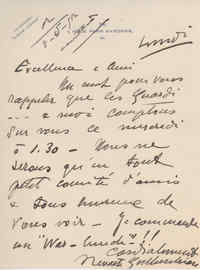 Lundi
Excellence & Ami
Un mot pour vous
rappeler que les Guardi
--- & nous comptons
sur vous ce mercredi
à 1.30 - Nous ne
serons qu'un tout
petit comité d'amis
& tous heureux de
vous voir - Je commande
un "War-Lunch"!!!
Cordialement